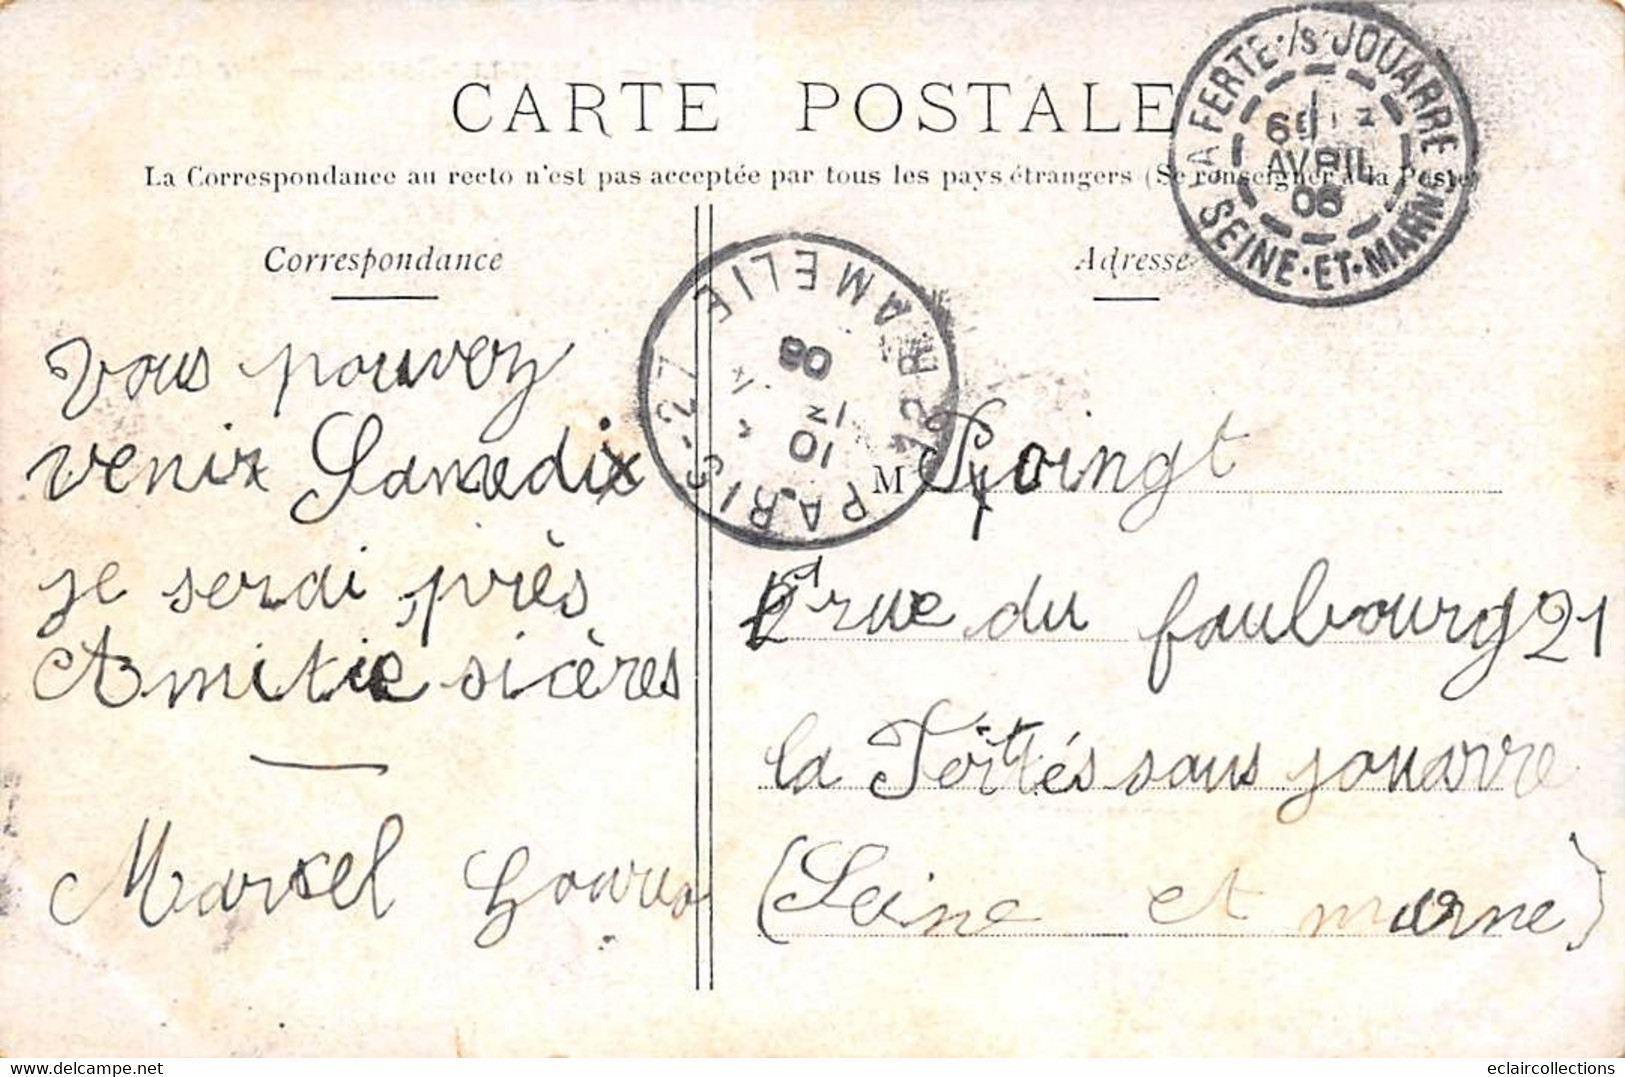 CARTE POSTALE
La Correspondance au recto n'est pas acceptée par tous les pays étrangers (Se renseigner à la Poste)
Correspondance
Adresse
LA FERTE-/S-JOUARRE
SEINE-ET-MARNE
AVRIL
08
PARIS-27
R. AMELIE
10
08
vous pouvez
venir Samedi
je serai près
Amitié sicères
Marcel
M
rue du faubourg 21
la Fertés sous jouarre
(Seine et marne)
eclaircollections